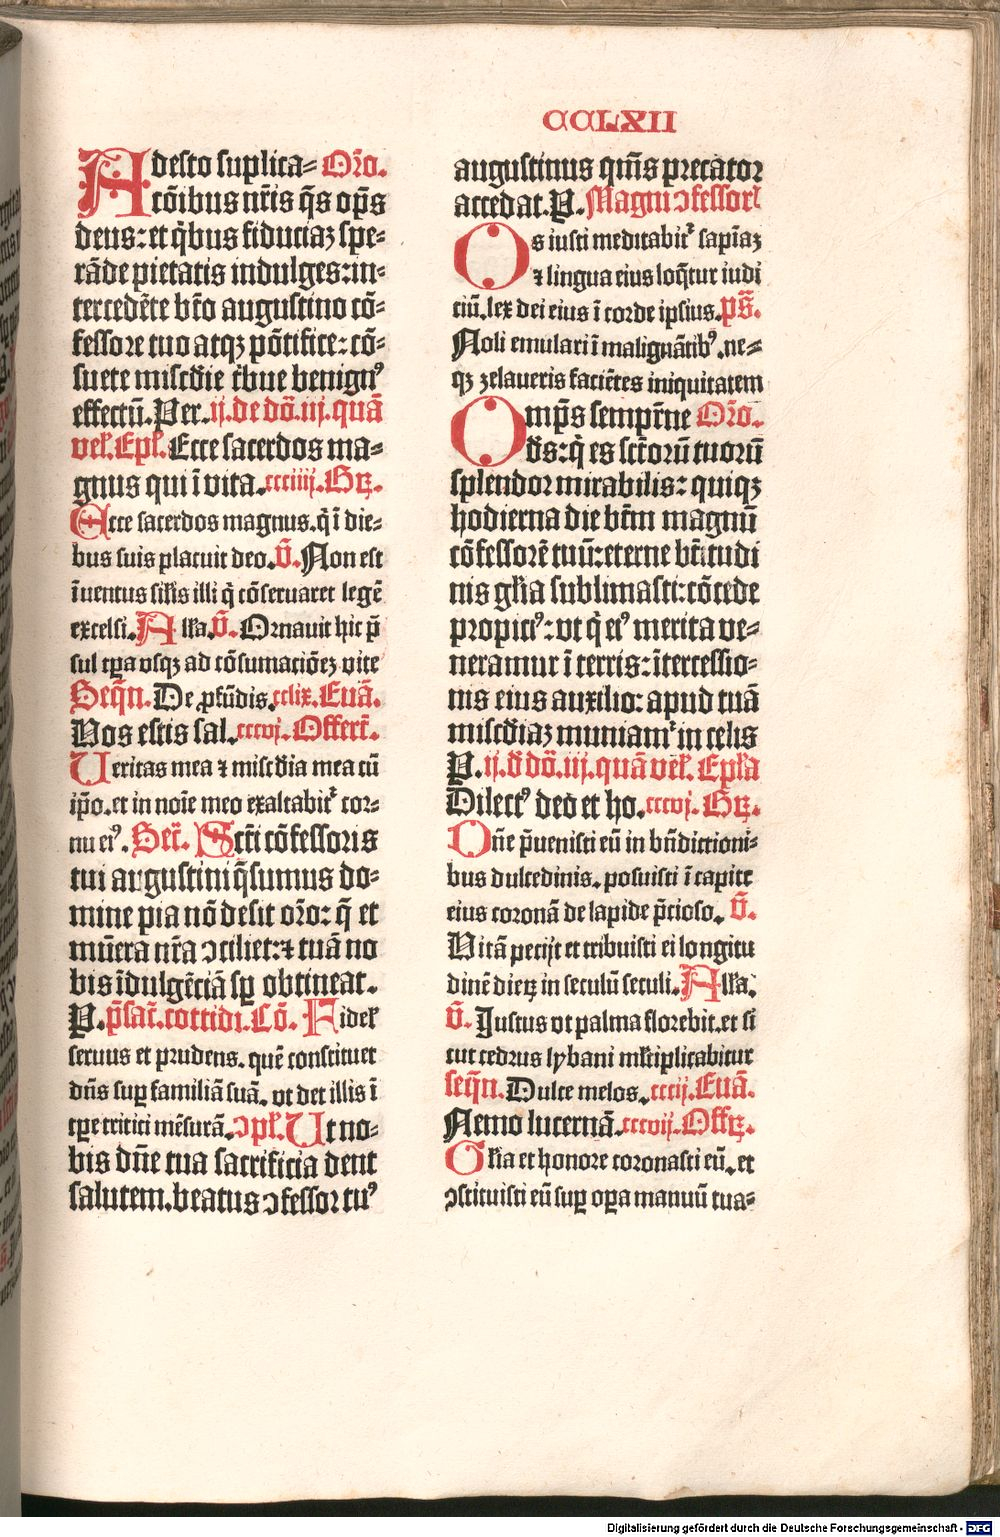 CCLXII
Adesto suplica= Oro̅.
co̅ibus nr̅is q̅s op̅s
deus: et q̇bus fiduciaȝ spe=
ra̅de pietatis indulges: in=
tercede̅te bt̅o augustino co̅=
fessore tuo atqȝ po̅tifice: co̅=
suete misc̅die t̅bue benignꝰ
effectu̅. Per. ij. de do̅. iij. qua̅
vel̓. Epl̓. Ecce sacerdos ma=
gnus qui i̅ vita. ccciiij. Gꝝ.
Ecce sacerdos magnus. q̇ i̅ die=
bus suis placuit deo. v̅. Non est
i̅uentus sil̓is illi q̇ co̅seruaret lege̅
excelsi. All̓a. v̅. Ornauit hic p̅
sul tp̅a vsqȝ ad co̅sumacio̅eȝ vite
Seq̅n. De ꝓfu̅dis. cclix. Eua̅.
Vos estis sal. cccvj. Offert̅.
Ueritas mea ⁊ misc̅dia mea cu̅
ip̅o. et in noi̅e meo exaltabit᷑ cor=
nu eiꝰ. Sec̅. Sct̅i co̅fessoris
tui augustini q̅sumus do=
mine pia no̅ desit oro̅: q̅ et
mu̅era nr̅a ↄciliet: ⁊ tua̅ no
bis i̅dulge̅cia̅ sꝑ obtineat.
P. p̅fat̅. cottidi. Co̅. Fidel̓
seruus et prudens. que̅ constituet
dn̅s suꝑ familia̅ sua̅. vt det illis i̅
tꝑe tritici me̅sura̅. ↄpl̓. Ut no=
bis dn̅e tua sacrificia dent
salutem. beatus ↄfessor tuꝰ
augustinus qm̅s precator
accedat. P. Magni ↄfessorl̓
Os iusti meditabit᷑ sapi̅aȝ
⁊ lingua eius loq̅tur iudi
ciu̅. lex dei eius i̅ corde ipsius. ps̅.
Noli emulari i̅ maligna̅tibꝰ. ne=
qȝ zelaueris facie̅tes iniquitatem
Omp̅s semprn̅e Oro̅.
ds̅: q̇ es scto̅ru̅ tuoru̅
splendor mirabilis: quiqȝ
hodierna die bt̅m magnu̅
co̅fessore̅ tuu̅: eterne bt̅itudi
nis gl̓ia sublimasti: co̅cede
propiciꝰ: vt q̇ eiꝰ merita ve=
neramur i̅ terris: i̅tercessio=
nis eius auxilio: apud tua̅
misc̅diaȝ muniam᷑ in celis
P. ij. d̅ do̅. iij. qua̅ vel̓. Epl̓a
Dilectꝰ deo et ho. cccvj. Gꝝ.
Dn̅e p̅uenisti eu̅ in bn̅dictioni=
bus dulcedinis. posuisti i̅ capite
eius corona̅ de lapide p̅cioso. v̅.
Vita̅ pecijt et tribuisti ei longitu
dine̅ dieꝝ in seculu̅ seculi. All̓a.
v̅. Justus vt palma florebit. et si
cut cedrus lybani ml̓tiplicabitur
seq̅n. Dulce melos. cccij. Eua̅.
Nemo lucerna̅. cccvij. Offꝝ.
Gl̓ia et honore coronasti eu̅. et
ↄstituisti eu̅ suꝑ oꝑa manuu̅ tua=
Digitalisierung gefördert durch die Deutsche Forschungsgemeinschaft - DFG